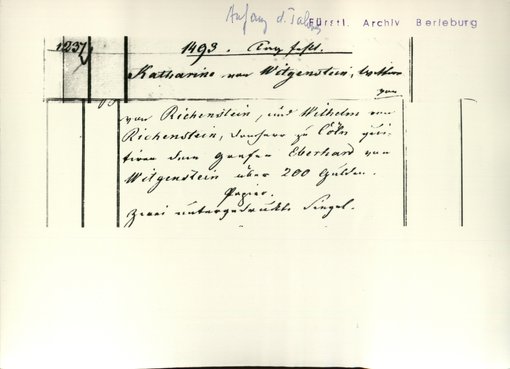 Anfang d. Jahres
Fürstl. Archiv Berleburg
1237
1493. Tag fehlt.
Katharine von Witgenstein, Wittwe
von
von Richenstein, und Wilhelm von
Richenstein, Domherr zu Cöln quit-
tiren dem Grafen Eberhard von
Witgenstein über 200 Gulden.
Papier.
Zwei untergedruckte Siegel.